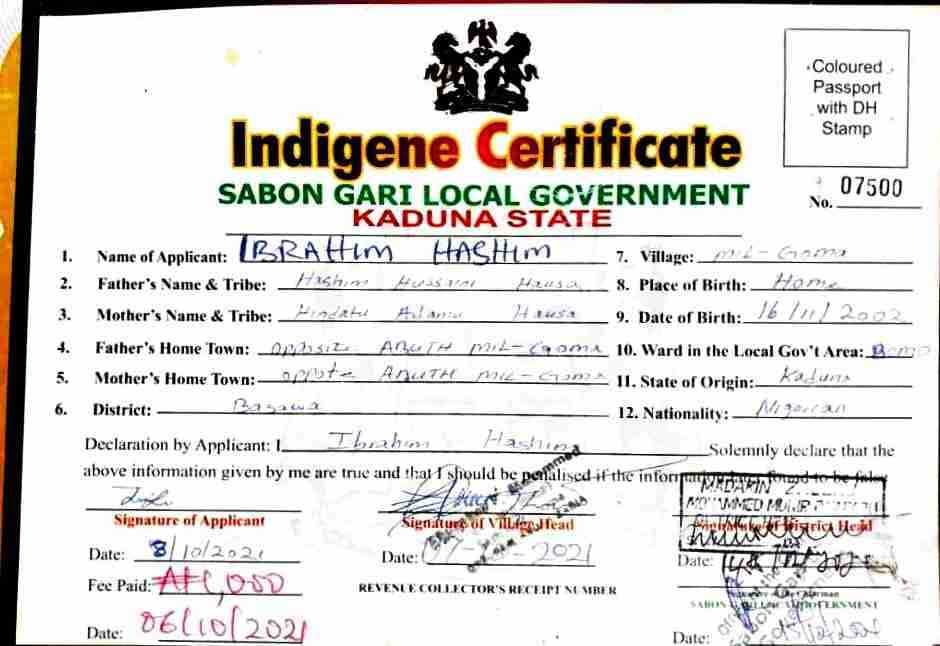 Coloured
Passport
with DH
Stamp
Indigene Certificate
SABON GARI LOCAL GOVERNMENT
KADUNA STATE
No. 07500
1. Name of Applicant: IBRAHIM HASHIM
7. Village: MIL-Goma
2. Father's Name & Tribe: Hashim Hussaini Hausa
8. Place of Birth: Home
3. Mother's Name & Tribe: Hindatu Adamu Hausa
9. Date of Birth: 16/11/2002
4. Father's Home Town: opposite ABUTH MIL-Goma
10. Ward in the Local Gov't Area: BOMO
5. Mother's Home Town: oppote ABUTH MIL-Goma
11. State of Origin: Kaduna
6. District: Basawa
12. Nationality: Nigerian
Declaration by Applicant: I Ibrahim Hashim Solemnly declare that the
above information given by me are true and that I should be penalised if the information found to be false
Signature of Applicant
Signature of Village Head
Signature of District Head
Date: 8/10/2021
Date: 2021
Date:
Fee Paid: ₦1,000
REVENUE COLLECTOR'S RECEIPT NUMBER
Signature of the Chairman
SABON GARI LOCAL GOVERNMENT
Date: 06/10/2021
Date: